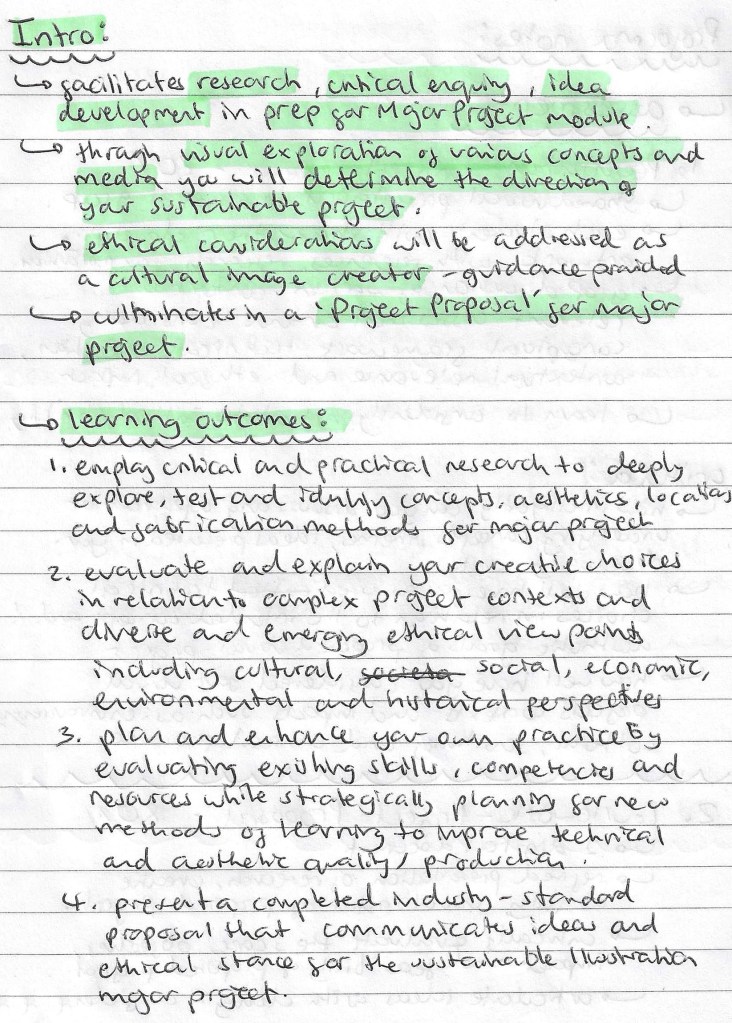 Intro:
↳ facilitates research, critical enquiry, idea
development in prep for Major Project module.
↳ through visual exploration of various concepts and
media you will determine the direction of
your sustainable project.
↳ ethical considerations will be addressed as
a cultural image creator - guidance provided
↳ culminates in a 'Project Proposal' for major
project.
↳ learning outcomes:
1. employ critical and practical research to deeply
explore, test and identify concepts, aesthetics, locations
and fabrication methods for major project
2. evaluate and explain your creative choices
in relation to complex project contexts and
diverse and emerging ethical view points
including cultural, societa social, economic,
environmental and historical perspectives
3. plan and enhance your own practice by
evaluating existing skills, competencies and
resources while strategically planning for new
methods of learning to improve technical
and aesthetic quality/production.
4. present a completed industry-standard
proposal that communicates ideas and
ethical stance for the sustainable illustration
major project.